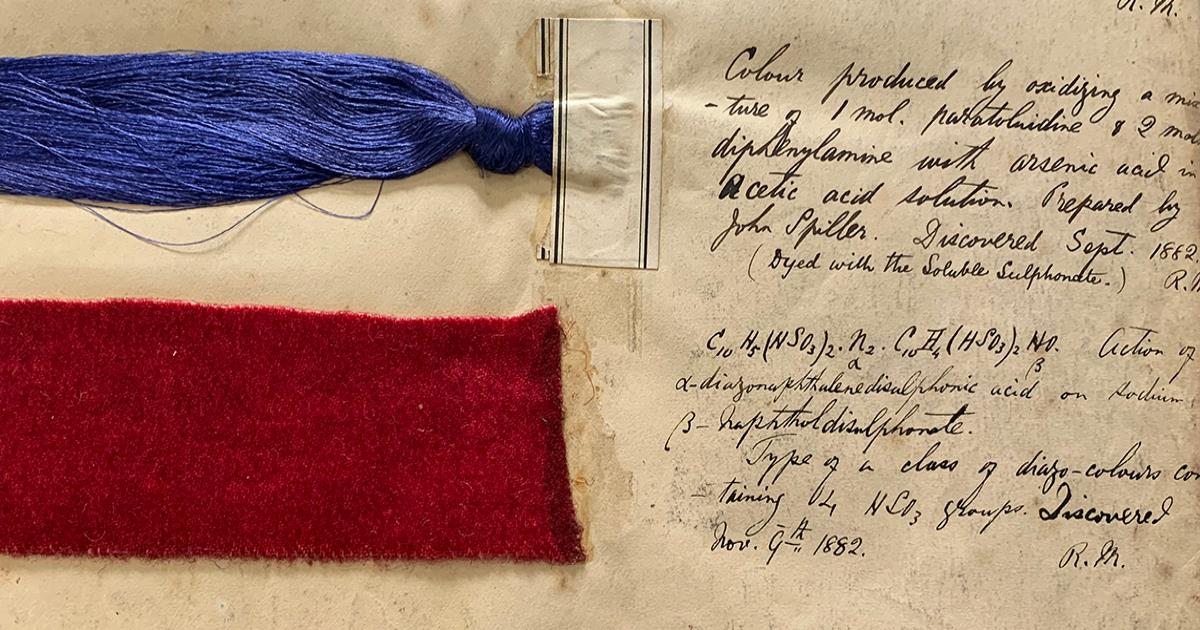 R. M.
Colour produced by oxidizing a mix
-ture of 1 mol. paratoluidine & 2 mols
diphenylamine with arsenic acid in
acetic acid solution. Prepared by
John Spiller. Discovered Sept. 1882.
(Dyed with the Soluble Sulphonate.) R.M
C₁₀H₅(HSO₃)₂.N₂.C₁₀H₄(HSO₃)₂HO. Action of
α β
α-diazonaphthalenedisulphonic acid on sodium
β-naphtholdisulphonate.
Type of a class of diazo-colours con
-taining 4 HSO₃ groups. Discovered
Nov. 9th 1882.
R. M.